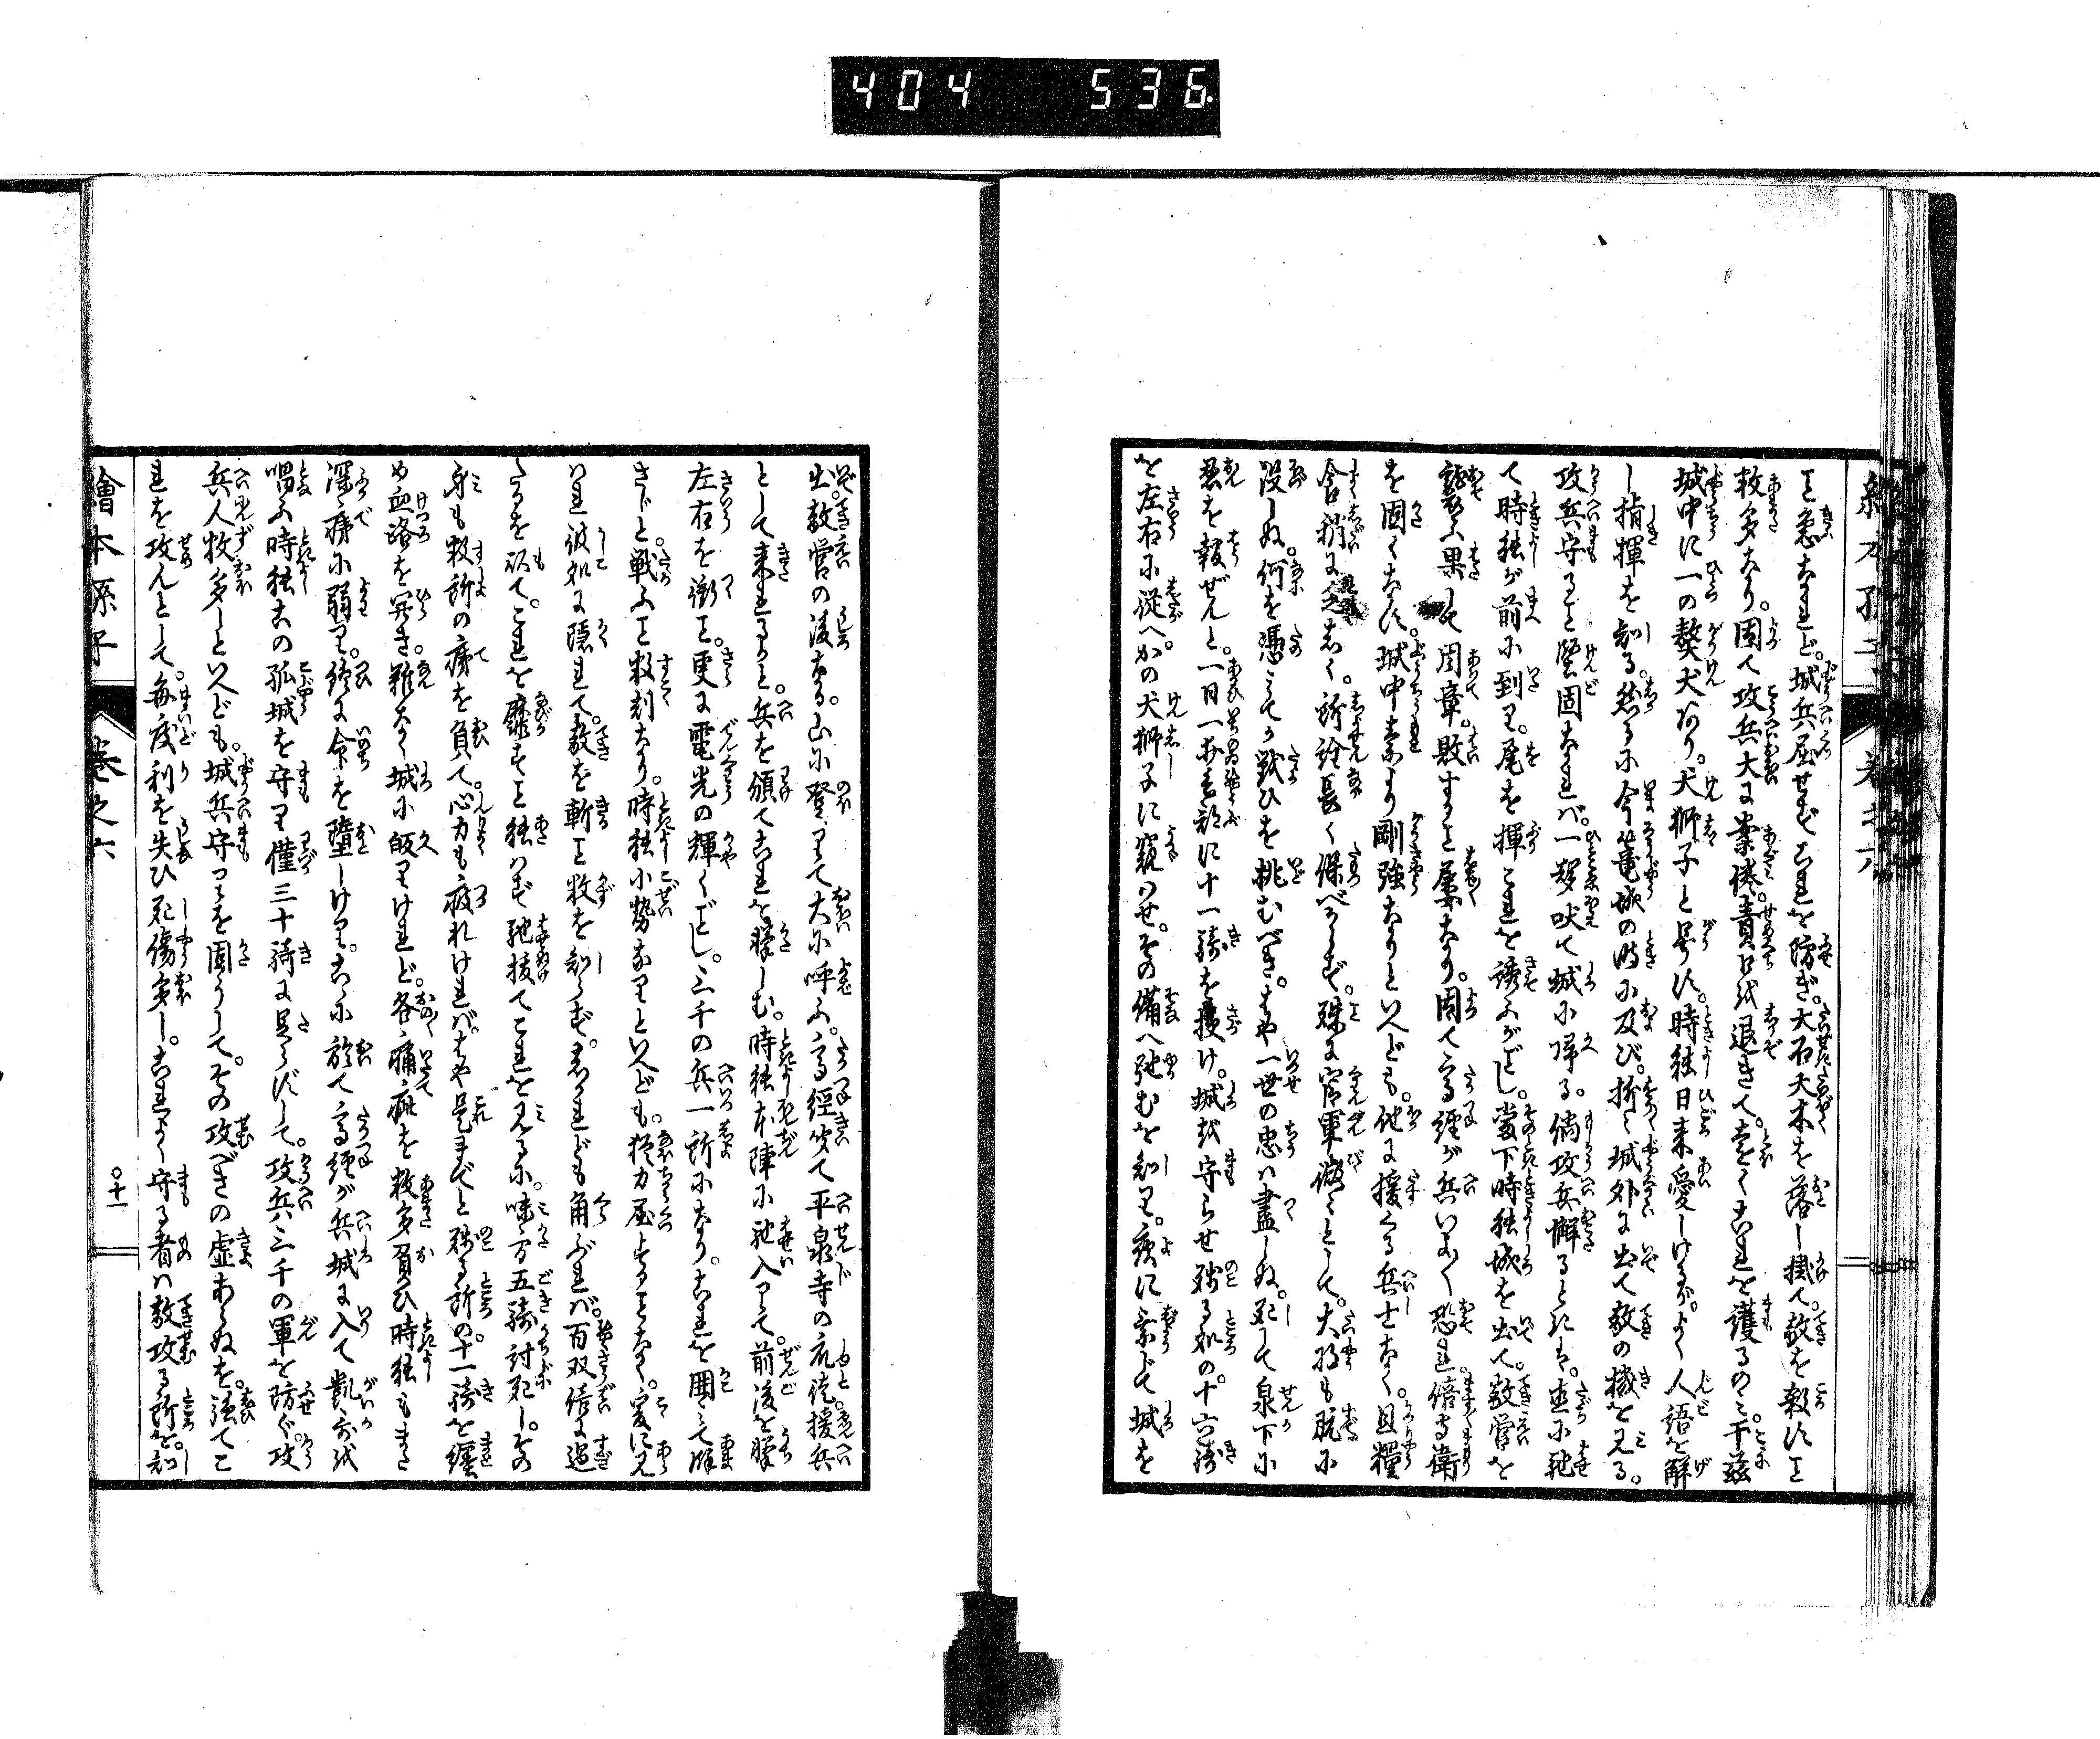 404 536
こと急なれど。城兵屈せずこれを防ぎ。大石大木を落し掛て。敵を殺すこと
数多なり。因て攻兵大に案倦。責口を退きて。遠くこれを護るのミ。于茲
城中に一の獒犬あり。犬獅子と号す。時能日来愛しけるが。よく人語を解
し指揮を知る。然るに今篭城の時に及び。折々城外に出て敵の機を見る。
攻兵守こと堅固なれバ。一声吠て城に帰る。倘攻兵懈るときは。直に馳
て時能が前に到り。尾を揮これを誘ふがごし。当下時能城を出て。敵営を
襲ふ果して周章。敗すること屡なり。因て高経が兵いよいよ恐れ。倍守衛
を固くなす。城中素より剛強なりといへども。他に援くる兵士なく。且糧
舎稍に乏しく。所詮長く保べからず。殊に官軍微々として。大将も既に
没しぬ。何を憑ミてか戦ひを挑むべき。もや一世の忠ハ盡しぬ。死して泉下に
恩を報ぜんと。一日一井兵部に十一騎を授け。城を守らせ残る処の。十六騎
を左右に従へ。かの犬獅子に窺ハせ。その備へ弛むを知り。夜に乗じて城を
出。敵営の後なる。山に登りて大に呼ふ。高経笑て平泉寺の衆徒。援兵
として来れるかと。兵を頒てこれを撃しむ。時能本陣に馳入りて。前後を撃
左右を衝こと。更に電光の輝くごし。三千の兵一所になり。これを囲ミて鏖
さじと。戦ふこと数刻なり。時能小勢なりといへども。猶力屈することなく。爰に見
ハれ彼処に隠れて。敵を斬こと数を知らず。君かれども角ぶれバ。百双倍に過
たるを以て。これを靡すこと能ハず馳抜てこれを見るに。味方五騎討死し。その
身も数所の疵を負て。心力も疲れけれバ。もや是までと残る所の。十一騎を纏
め血路を開き。難なく城に皈りけれど。各々痛疵を数多負ひ時能もまた
深き疵に弱り。終に命を墮しけり。こゝに於て高経が兵城に入て凱哥を
唱ふ時能この孤城を守り僅三十騎に足らずして。攻兵三千の軍を防ぐ。攻
兵人数多しといへども。城兵守つミを固うして。その攻べきの虚あらぬを。強てこ
れを攻んとして。毎度利を失ひ死傷多し。これよく守る者ハ敵攻る所を。知
繪本孫子 巻之六 〇十一